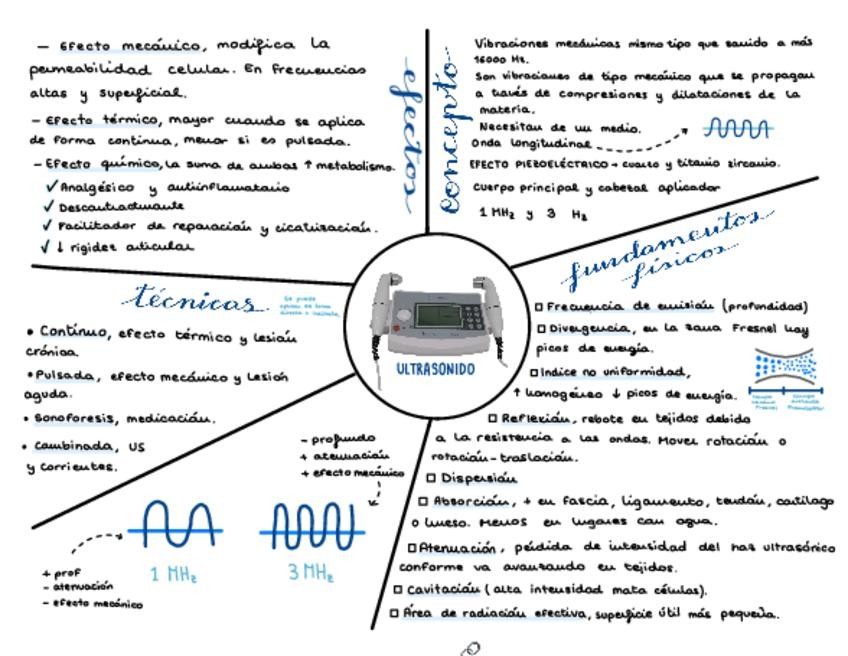 efectos
— Efecto mecánico, modifica la
permeabilidad celular. En frecuencias
altas y superficial.
— Efecto térmico, mayor cuando se aplica
de forma continua, menor si es pulsada.
— Efecto químico, la suma de ambas ↑ metabolismo.
✓ Analgésico y antiinflamatorio
✓ Descontracturante
✓ Facilitador de reparación y cicatrización.
✓ ↓ rigidez articular
concepto
Vibraciones mecánicas mismo tipo que sonido a más
16000 Hz.
Son vibraciones de tipo mecánico que se propagan
a través de compresiones y dilataciones de la
materia.
Necesitan de un medio.
Onda longitudinal
EFECTO PIEZOELÉCTRICO → cuarzo y titanio zirconio.
Cuerpo principal y cabezal aplicador
1 MHz y 3 Hz
fundamentos
físicos
□ Frecuencia de emisión (profundidad)
□ Divergencia, en la zona Fresnel hay
picos de energía.
□ Indice no uniformidad,
↑ homogéneo ↓ picos de energía.
□ Reflexión, rebote en tejidos debido
a la resistencia a las ondas. Mover rotación o
rotación-traslación.
□ Dispersión
□ Absorción, + en fascia, ligamento, tendón, cartílago
o hueso. Menos en lugares con agua.
□ Atenuación, pérdida de intensidad del haz ultrasónico
conforme va avanzando en tejidos.
□ Cavitación (alta intensidad mata células).
□ Área de radiación efectiva, superficie útil más pequeña.
técnicas
• Contínuo, efecto térmico y lesión
crónica.
• Pulsada, efecto mecánico y lesión
aguda.
• Sonoforesis, medicación.
• Combinada, US
y corrientes.
ULTRASONIDO
- profundo
+ atenuación
+ efecto mecánico
+ prof
- atenuación
- efecto mecánico
1 MHz
3 MHz